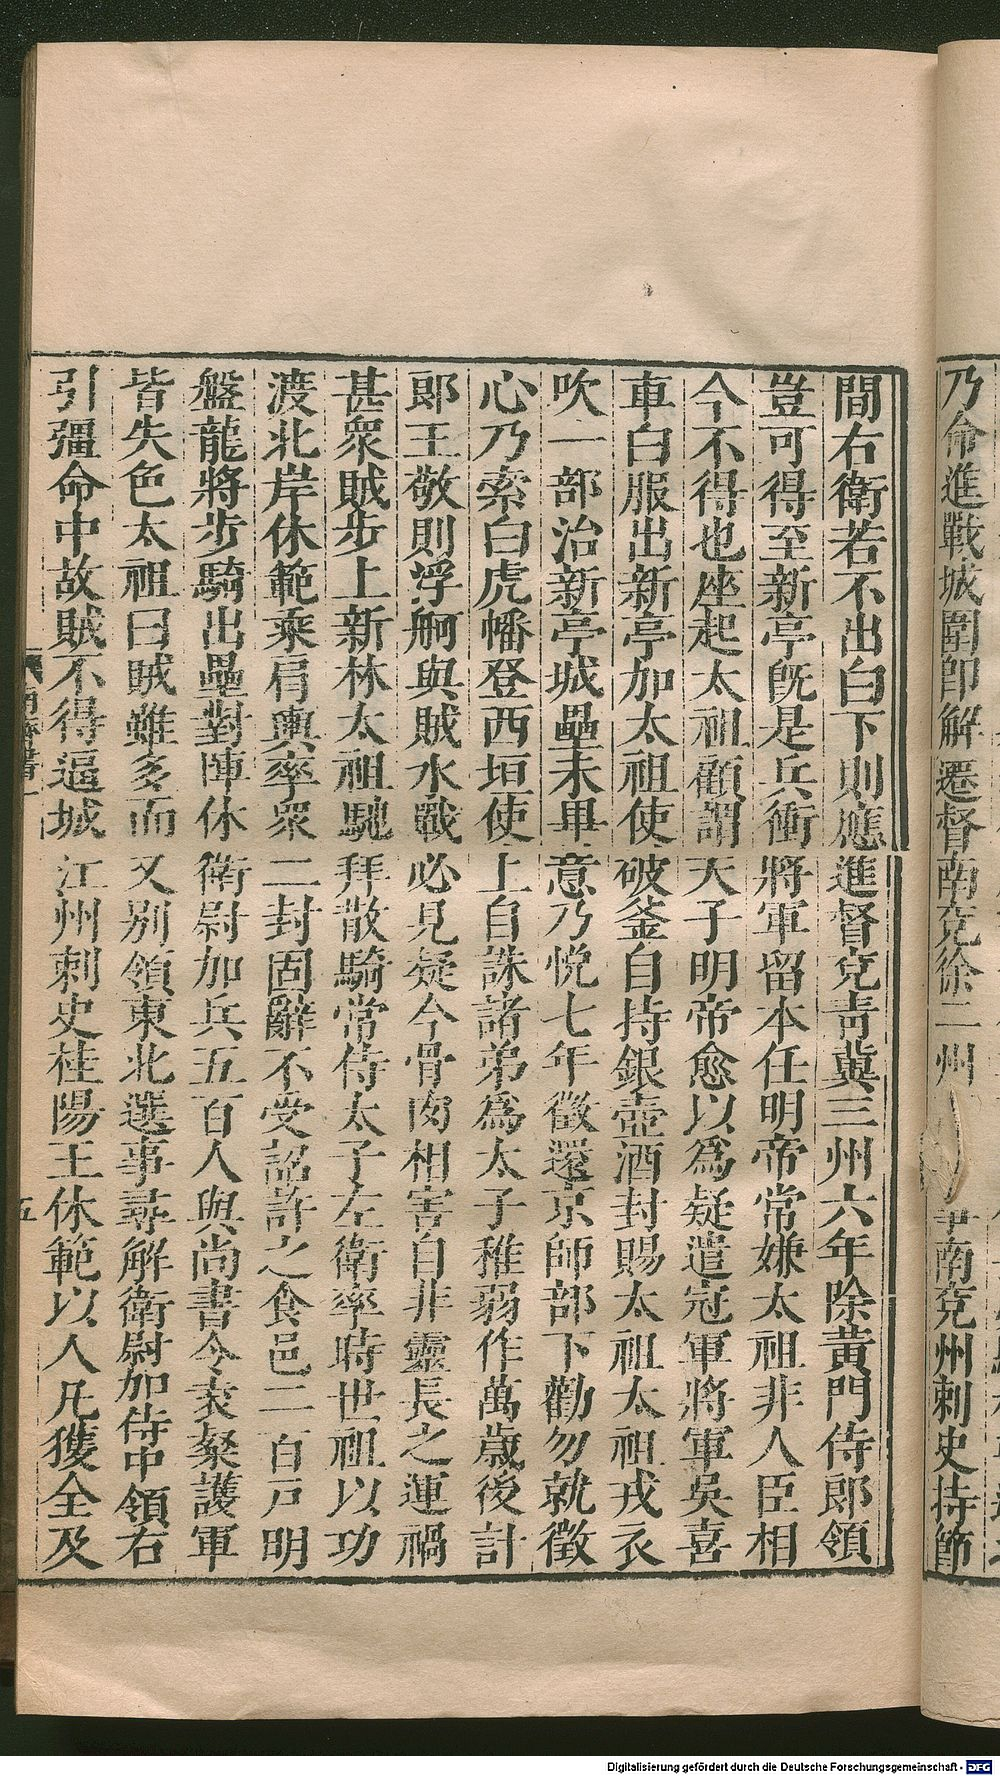 乃命進戰城圍即解遷督南兗徐二州南兗州刺史持節
間右衛若不出白下則應進督兗青冀三州六年除黃門侍郎領
豈可得至新亭旣是兵衝將軍留本任明帝常嫌太祖非人臣相
今不得也座起太祖顧謂天子明帝愈以爲疑遣冠軍將軍吳喜
車白服出新亭加太祖使破釜自持銀壺酒封賜太祖太祖戎衣
吹一部治新亭城壘未畢意乃悅七年徵還京師部下勸勿就徵
心乃索白虎幡登西垣使上自誅諸弟爲太子稚弱作萬歲後計
郞王敬則浮舸與賊水戰必見疑今骨肉相害自非靈長之運禍
甚衆賊步上新林太祖馳拜散騎常侍太子左衛率時世祖以功
渡北岸休範乘肩輿率衆二封固辭不受詔許之食邑二百戸明
盤龍將步騎出壘對陣休衛尉加兵五百人與尚書令袁粲護軍
皆失色太祖曰賊雖多而又別領東北選事尋解衛尉加侍中領右
引彊命中故賊不得逼城江州刺史桂陽王休範以人凡獲全及
南齊書一
五
Digitalisierung gefördert durch die Deutsche Forschungsgemeinschaft - DFG